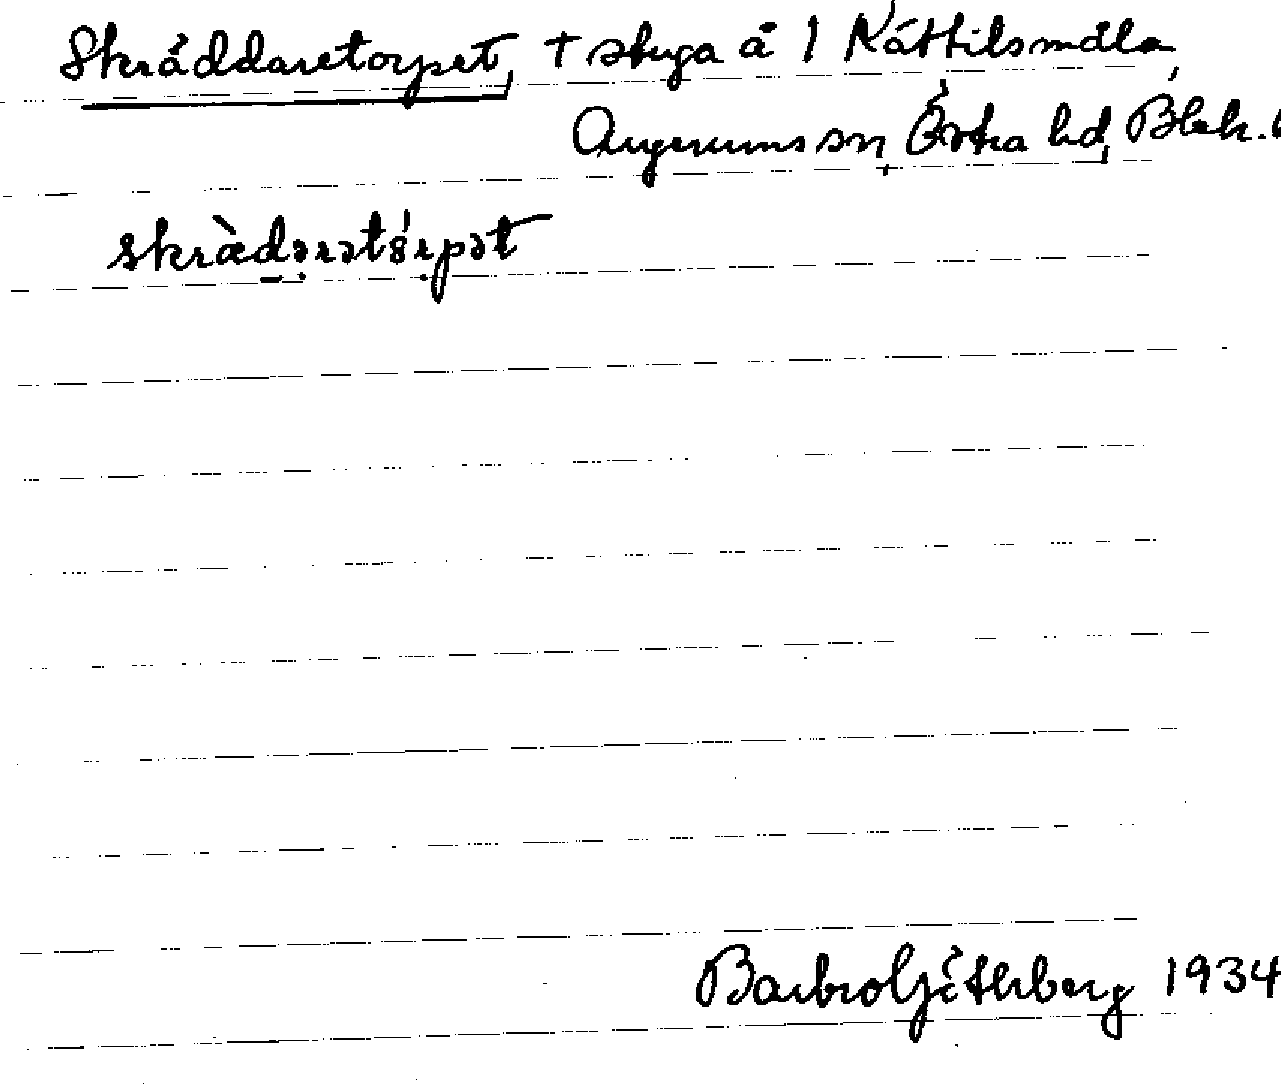 Skräddaretorpet, † stuga å 1 Kättilsmåla,
Augerums sn, Östra hd, Blek.
skrædərətərpət
Barbro Göthberg 1934